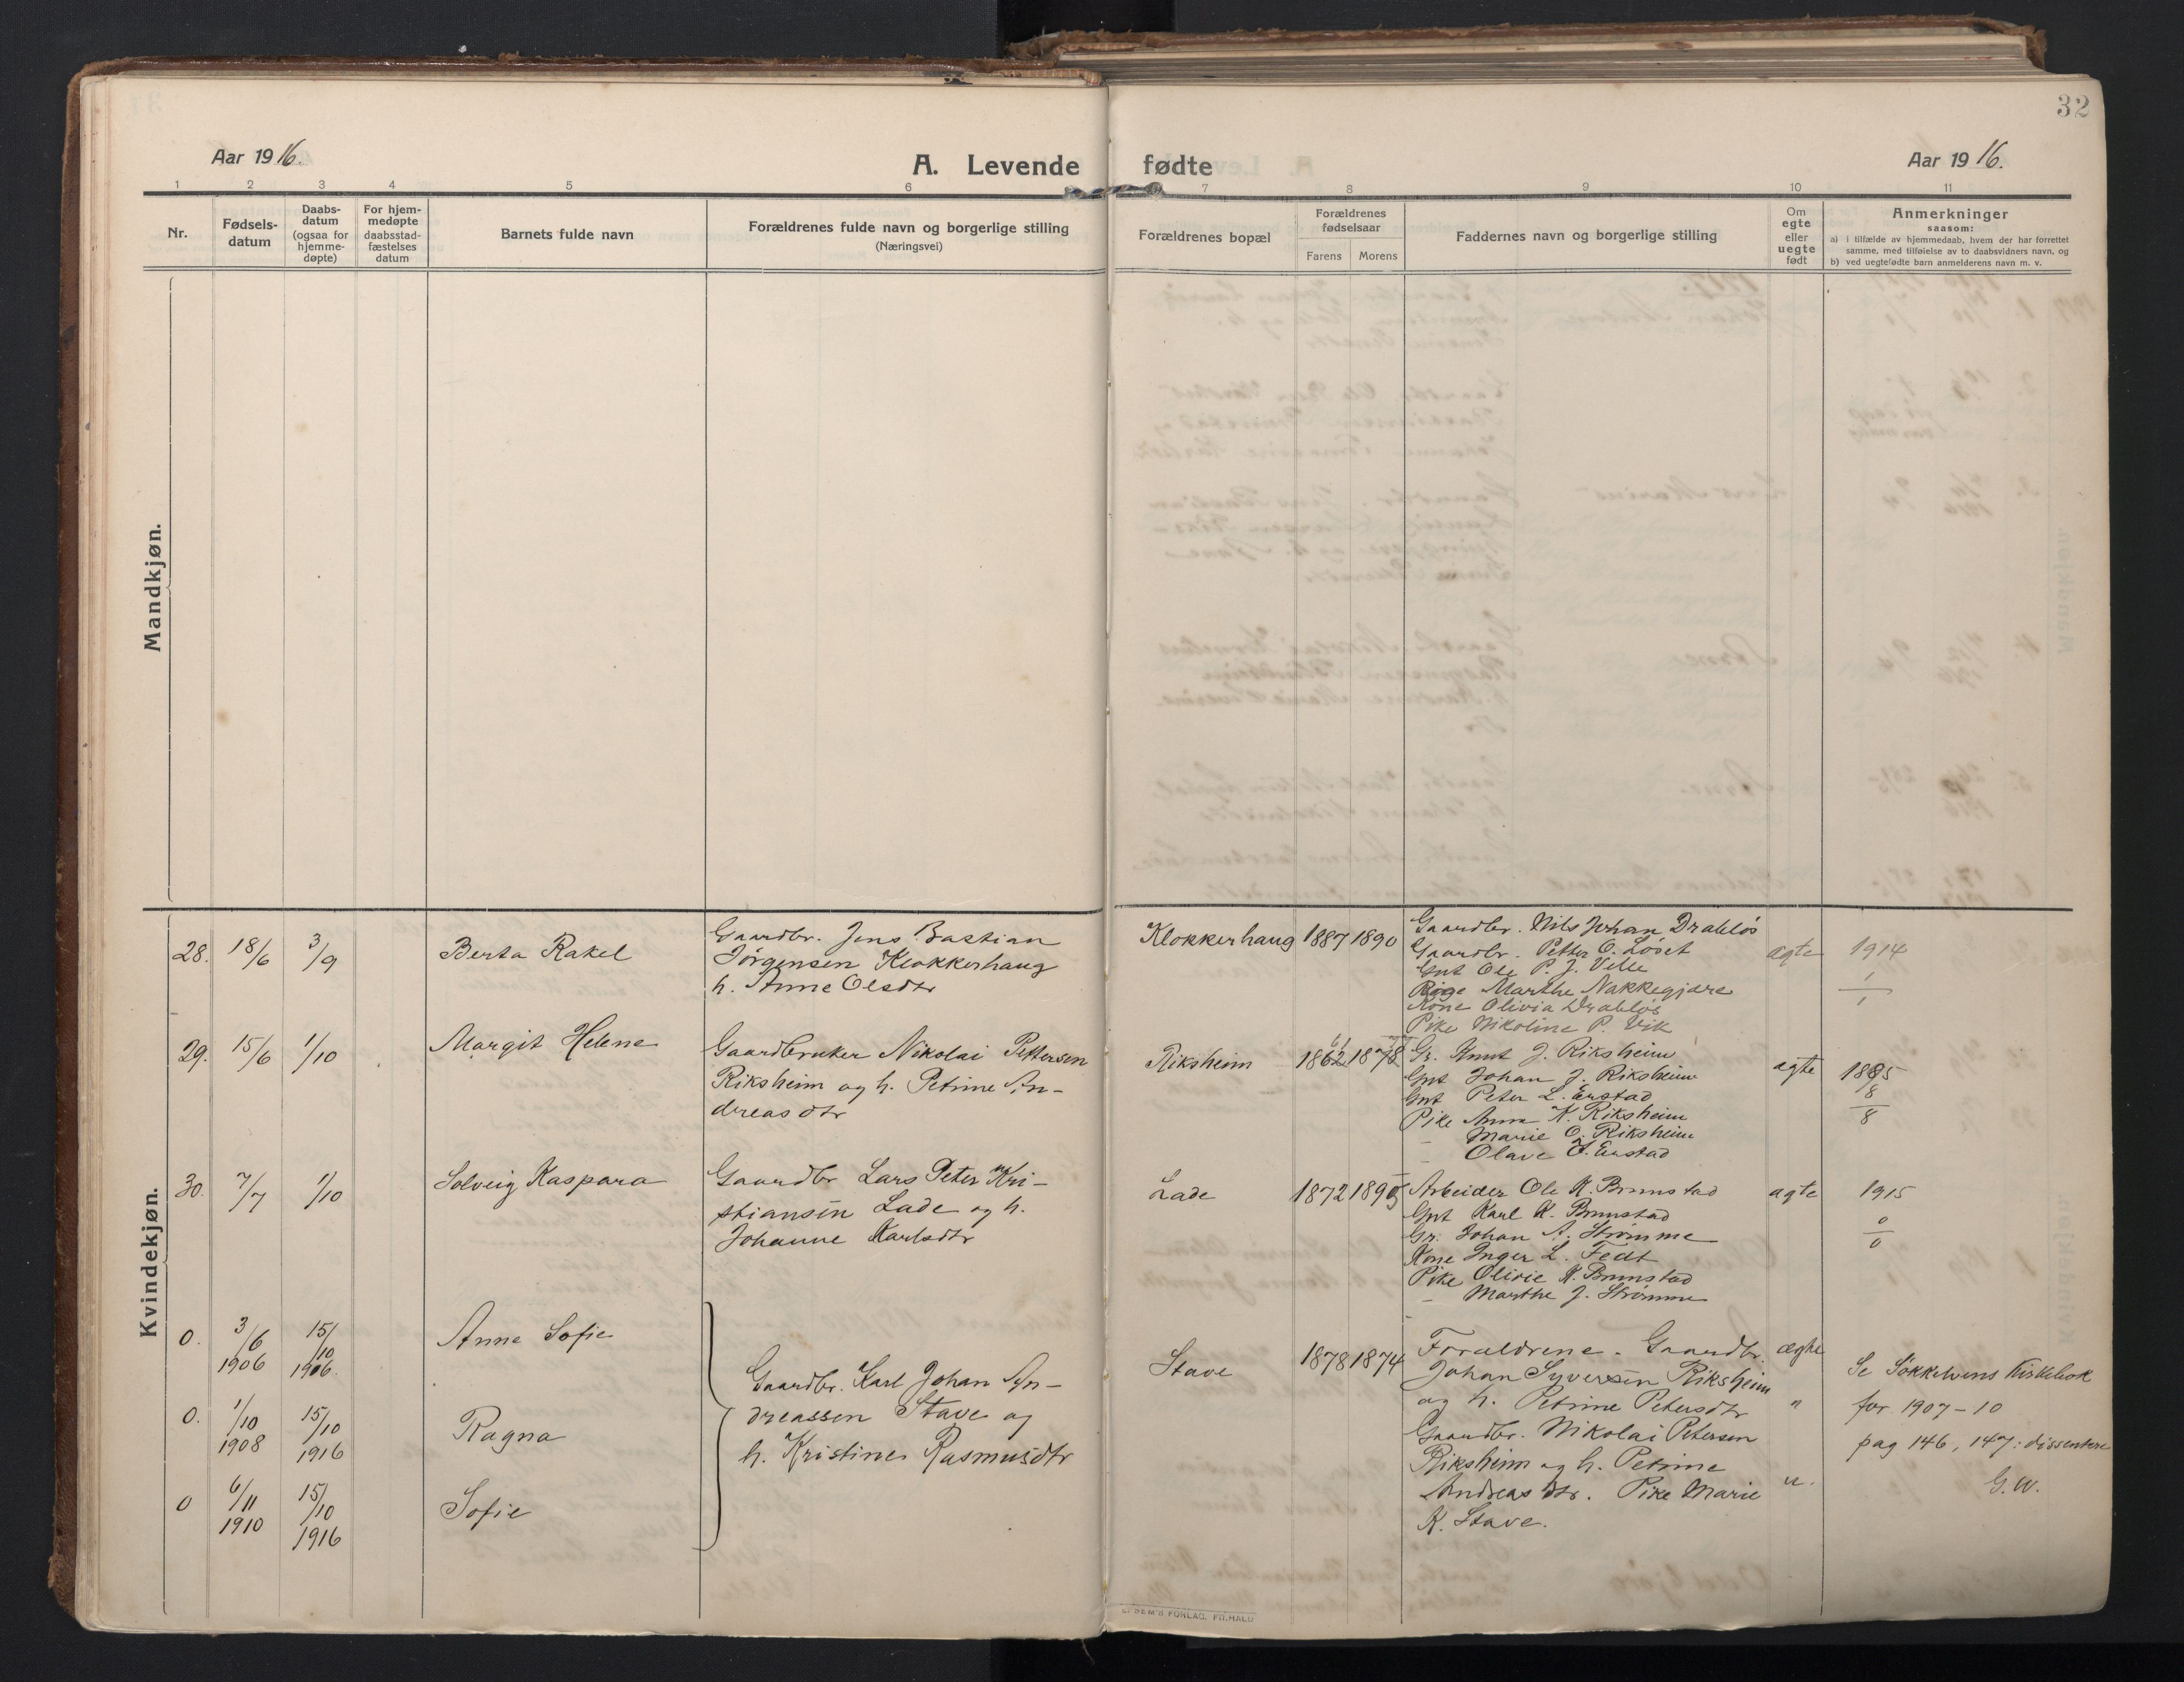 32
Aar 1916.
A. Levende fødte
Aar 1916.
1 2 3 4 5 6 7 8 9 10 11
Nr.
Fødsels-
datum
Daabs-
datum
(ogsaa for
hjemme-
døpte)
For hjem-
medøpte
daabsstad-
fæstelses
datum
Barnets fulde navn
Forældrenes fulde navn og borgerlige stilling
(Næringsvei)
Forældrenes bopæl
Forældrenes
fødselsaar
Farens Morens
Faddernes navn og borgerlige stilling
Om
egte
eller
uegte
født
Anmerkninger
saasom:
a) i tilfælde av hjemmedaab, hvem der har forrettet
samme, med tilføielse av to daabsvidners navn, og
b) ved uegtefødte barn anmelderens navn m. v.
Mandkjøn.
Kvindekjøn.
28. 18/6 3/9
Berta Rakel
Gaardbr. Jens Bastian
Jørgensen Klokkerhaug
h. Anne Olsdtr
Klokkerhaug 1887 1890
Gaardbr. Nils Johan Drabløs
Gaardbr. Petter O. Løset
Gnt Ole P. J. Velle
Marthe Nakkegjære
Kone Olivia Drabløs
Pike Nikoline P. Vik
ægte
1914
1
1
29. 15/6 1/10
Margit Helene
Gaardbruker Nikolai Pettersen
Riksheim og h. Petrine An-
dreasdtr
Riksheim 1862 1878
Gr. Knut J. Riksheim
Gnt Johan J. Riksheim
Gnt Peter L. Erstad
Pike Anna K. Riksheim
– Marie O. Riksheim
– Olave Erstad
ægte
1885
8
8
30. 7/7 1/10
Solveig Kaspara
Gaardbr Lars Peter Kri-
stiansen Lade og h.
Johanne Karlsdtr
Lade 1872 1895
Arbeider Ole K. Brunstad
Gnt Karl K. Brunstad
Gr. Johan A. Strømme
Kone Inger L. Fedt
Pike Olivie K. Brunstad
– Marthe J. Strømme
ægte
1915
0
0
0. 3/6 1906 15/10 1906.
Anne Sofie
0. 1/10 1908 15/10 1916
Ragna
0 6/11 1910 15/10 1916
Sofie
Gaardbr. Karl Johan An-
dreassen Stave og
h. Kristine Rasmusdtr
Stave 1878 1874
Forældrene. Gaardbr.
Johan Syversen Riksheim
og h. Petrine Petersdtr
Gaardbr. Nikolai Petersen
Riksheim og h. Petrine
Andreasdtr. Pike Marie
K. Stave.
ægte
"
"
Se Søkkelvens Kirkebok
for 1907–10
pag 146, 147: dissentere
G.W.
FORLAG. FR.HALD